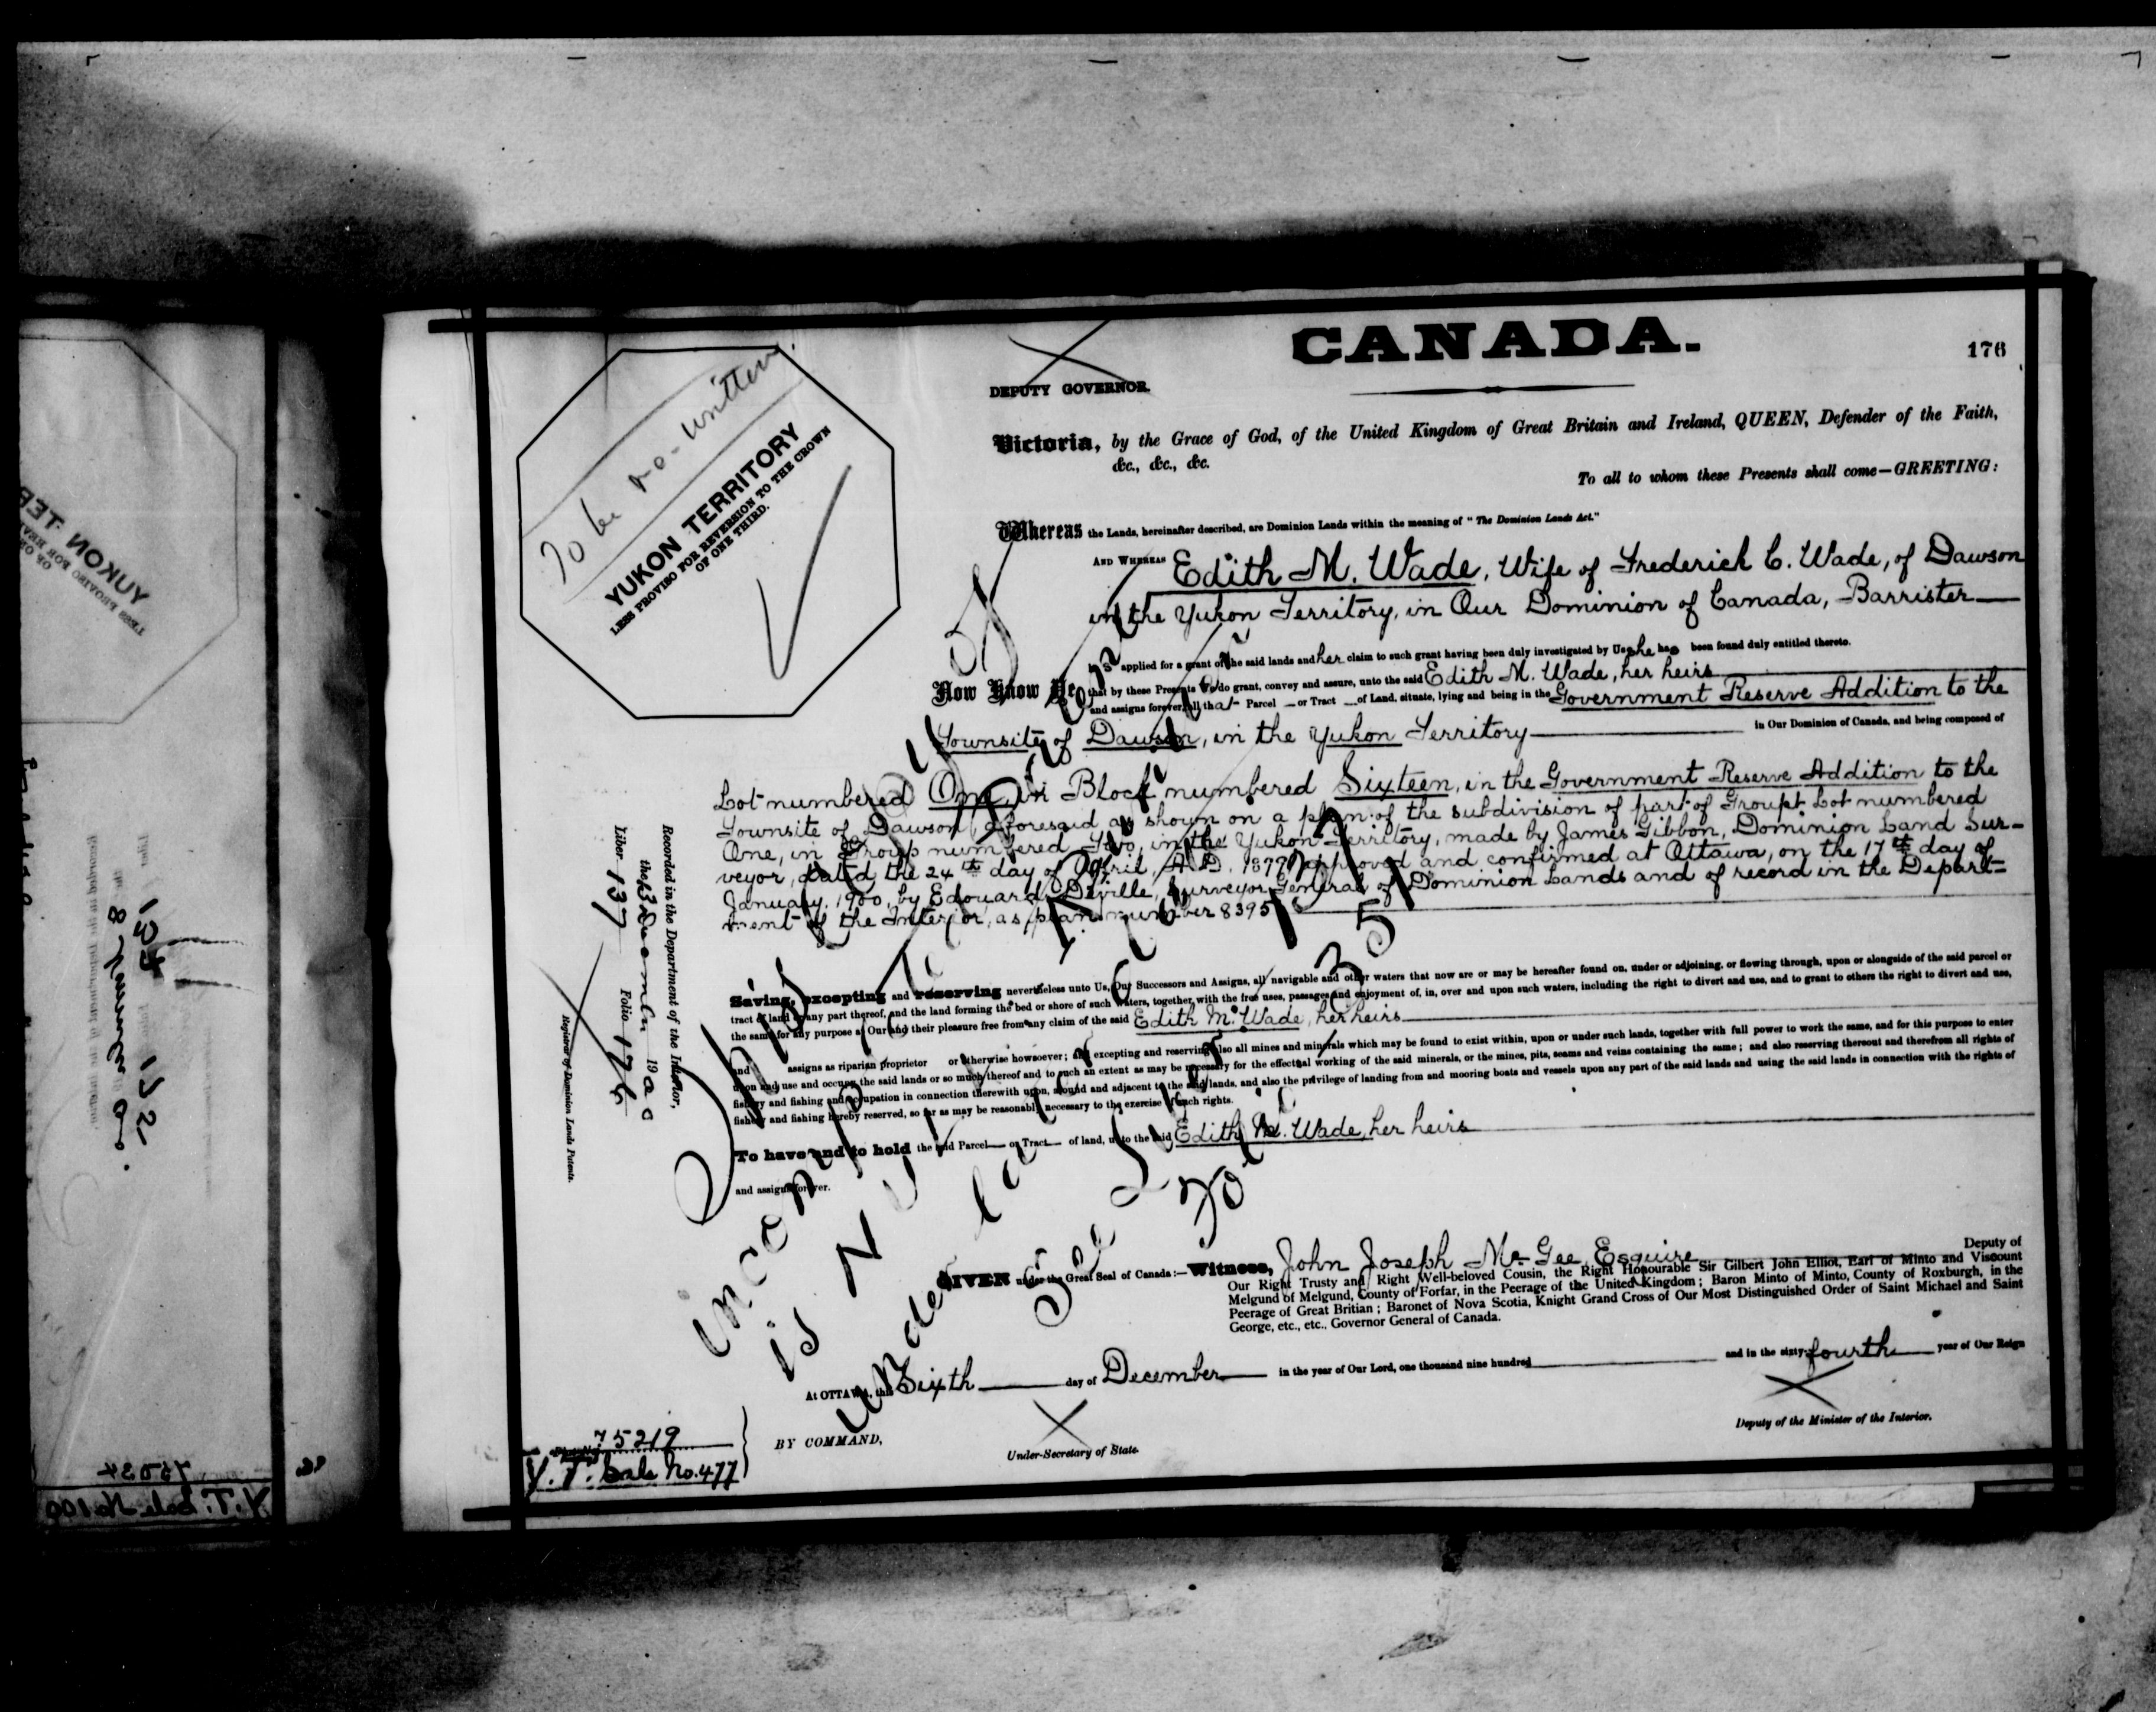 CANADA.
176
DEPUTY GOVERNOR.
To be re-written
YUKON TERRITORY
LESS PROVISO FOR REVERSION TO THE CROWN
OF ONE THIRD.
Victoria, by the Grace of God, of the United Kingdom of Great Britain and Ireland, QUEEN, Defender of the Faith,
&c., &c., &c.
To all to whom these Presents shall come—GREETING:
Whereas the Lands, hereinafter described, are Dominion Lands within the meaning of "The Dominion Lands Act."
AND WHEREAS Edith M. Wade, Wife of Frederick C. Wade, of Dawson
in the Yukon Territory, in Our Dominion of Canada, Barrister
has applied for a grant of the said lands and her claim to such grant having been duly investigated by Us she has been found duly entitled thereto.
Now Know Ye, that by these Presents We do grant, convey and assure, unto the said Edith M. Wade, her heirs
and assigns forever, all that Parcel or Tract of Land, situate, lying and being in the Government Reserve Addition to the
Townsite of Dawson, in the Yukon Territory in Our Dominion of Canada, and being composed of
Lot numbered One, in Block numbered Sixteen, in the Government Reserve Addition to the
Townsite of Dawson aforesaid as shown on a plan of the subdivision of part of Group Lot numbered
One, in Group numbered Two, in the Yukon Territory, made by James Gibbon, Dominion Land Sur-
veyor, dated the 24th day of April, A.D. 1899, approved and confirmed at Ottawa, on the 17th day of
January, 1900, by Edouard Deville, Surveyor General of Dominion Lands and of record in the Depart=
ment of the Interior, as plan number 8395
Saving, excepting and reserving nevertheless unto Us, Our Successors and Assigns, all navigable and other waters that now are or may be hereafter found on, under or adjoining, or flowing through, upon or alongside of the said parcel or
tract of land or any part thereof, and the land forming the bed or shore of such waters, together with the free uses, passages and enjoyment of, in, over and upon such waters, including the right to divert and use, and to grant to others the right to divert and use,
the same for any purpose at Our and their pleasure free from any claim of the said Edith M. Wade, her heirs
and assigns as riparian proprietor or otherwise howsoever; and excepting and reserving also all mines and minerals which may be found to exist within, upon or under such lands, together with full power to work the same, and for this purpose to enter
upon and use and occupy the said lands or so much thereof and to such an extent as may be necessary for the effectual working of the said minerals, or the mines, pits, seams and veins containing the same; and also reserving thereout and therefrom all rights of
fishery and fishing and occupation in connection therewith upon, around and adjacent to the said lands, and also the privilege of landing from and mooring boats and vessels upon any part of the said lands and using the said lands in connection with the rights of
fishery and fishing hereby reserved, so far as may be reasonably necessary to the exercise of such rights.
To have and to hold the said Parcel or Tract of land, unto the said Edith M. Wade, her heirs
and assigns forever.
GIVEN under the Great Seal of Canada:—Witness, John Joseph McGee Esquire Deputy of
Our Right Trusty and Right Well-beloved Cousin, the Right Honourable Sir Gilbert John Elliot, Earl of Minto and Viscount
Melgund of Melgund, County of Forfar, in the Peerage of the United Kingdom; Baron Minto of Minto, County of Roxburgh, in the
Peerage of Great Britian; Baronet of Nova Scotia, Knight Grand Cross of Our Most Distinguished Order of Saint Michael and Saint
George, etc., etc., Governor General of Canada.
At OTTAWA, this Sixth day of December in the year of Our Lord, one thousand nine hundred and in the sixty-fourth year of Our Reign
BY COMMAND,
Under-Secretary of State.
Deputy of the Minister of the Interior.
75219
Y. T. Sale No. 477
Recorded in the Department of the Interior,
the 13 December 1900
Liber 137 Folio 176
Registrar of Dominion Lands Patents.
This
is
under
See
35
YUKON TER
75034
Y.T. Sale No 100